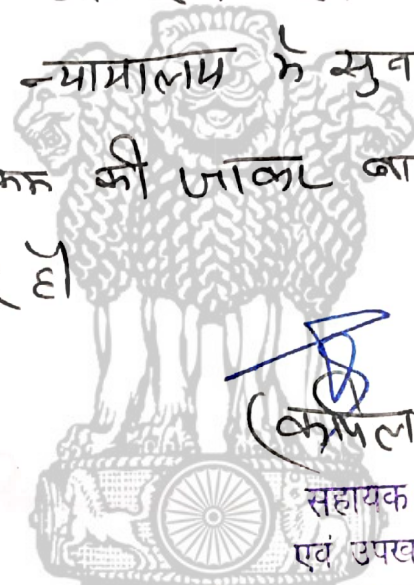 न्यायालय में सुन
की जाकर
हो
(कपिल
सहायक
एवं उपख